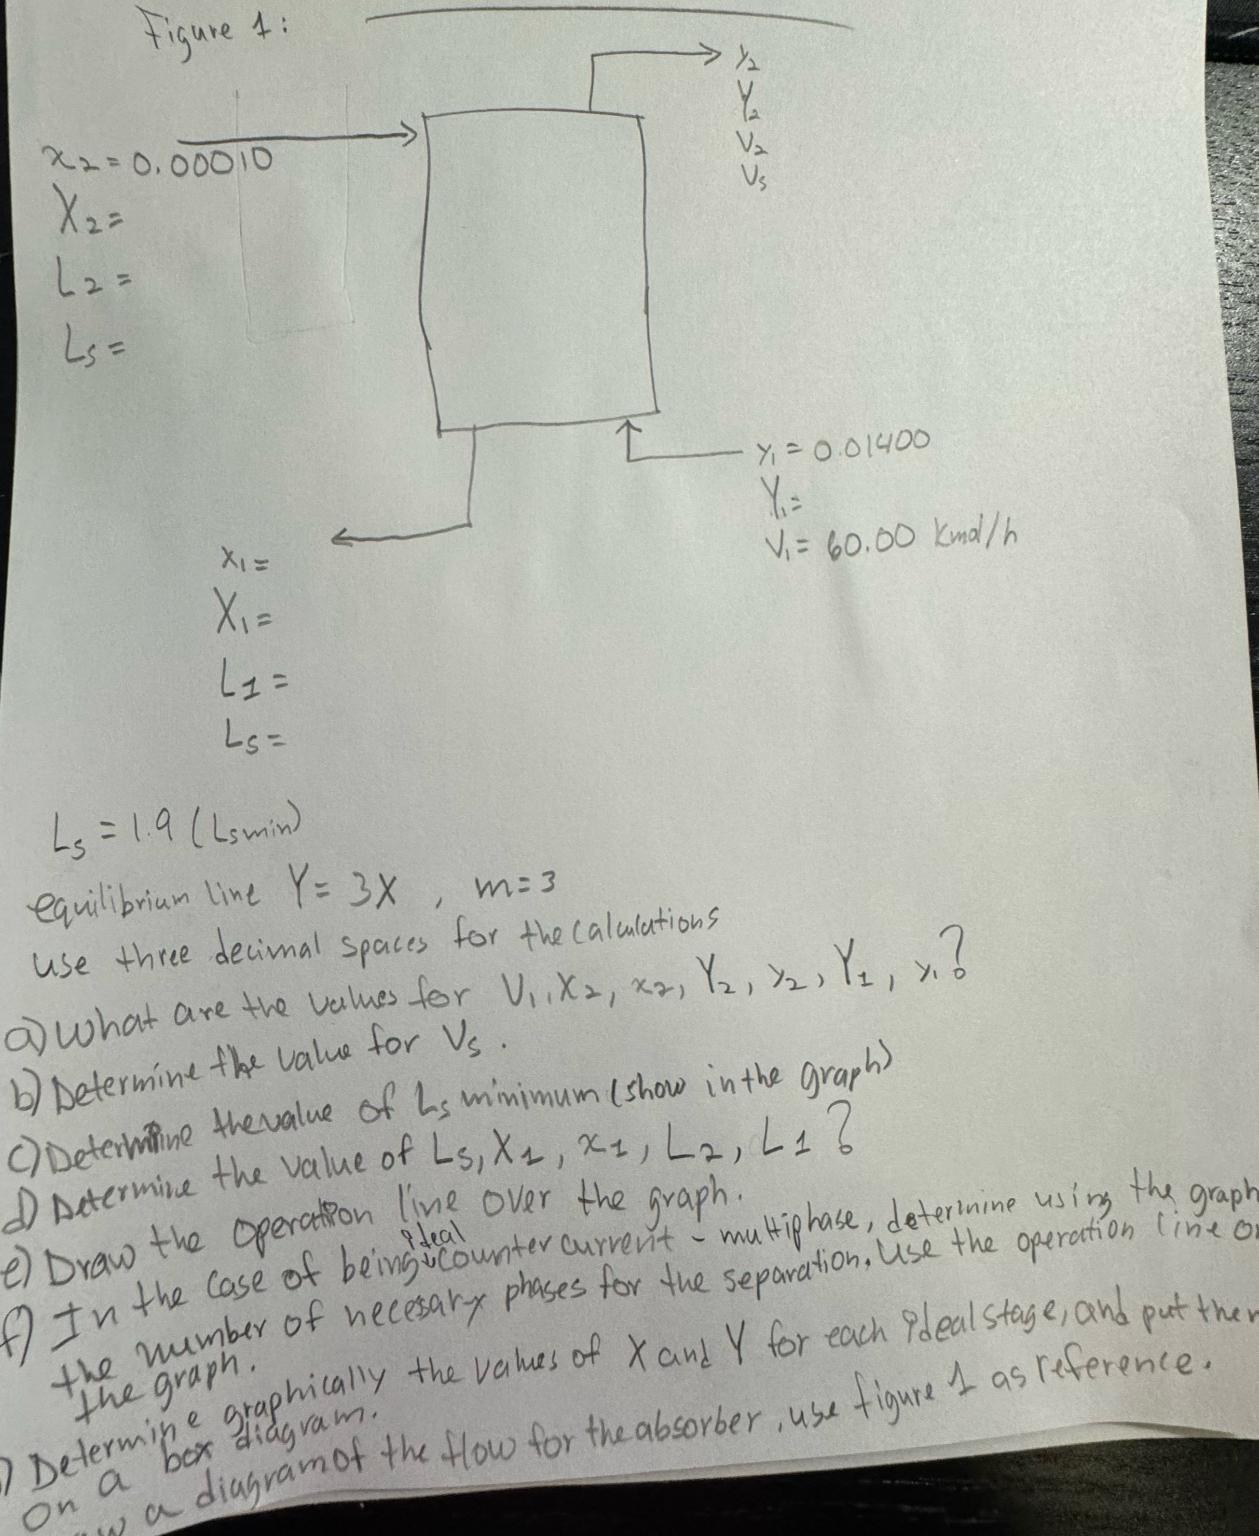 Figure 1:
y₂
Y₂
V₂
Vs
x₂ = 0.00010
X₂ =
L₂ =
Ls =
y₁ = 0.01400
Y₁ =
V₁ = 60.00 Kmol/h
x₁ =
X₁ =
L1 =
Ls =
Ls = 1.9 (Lsmin)
equilibrium line Y = 3X , m = 3
use three decimal spaces for the calculations
a) What are the values for V₁, X₂, x₂, Y₂, y₂, Y₁, y₁?
b) Determine the value for Vs.
c) Determine the value of Ls minimum (show in the graph)
d) Determine the value of Ls, X1, x1, L2, L1?
e) Draw the operation line over the graph.
f) In the case of being ideal counter current - multiphase, determine using the graph
the number of necesary phases for the separation. Use the operation line
the graph.
) Determine graphically the values of X and Y for each ideal stage, and put
on a box diagram.
a diagram of the flow for the absorber, use figure 1 as reference.